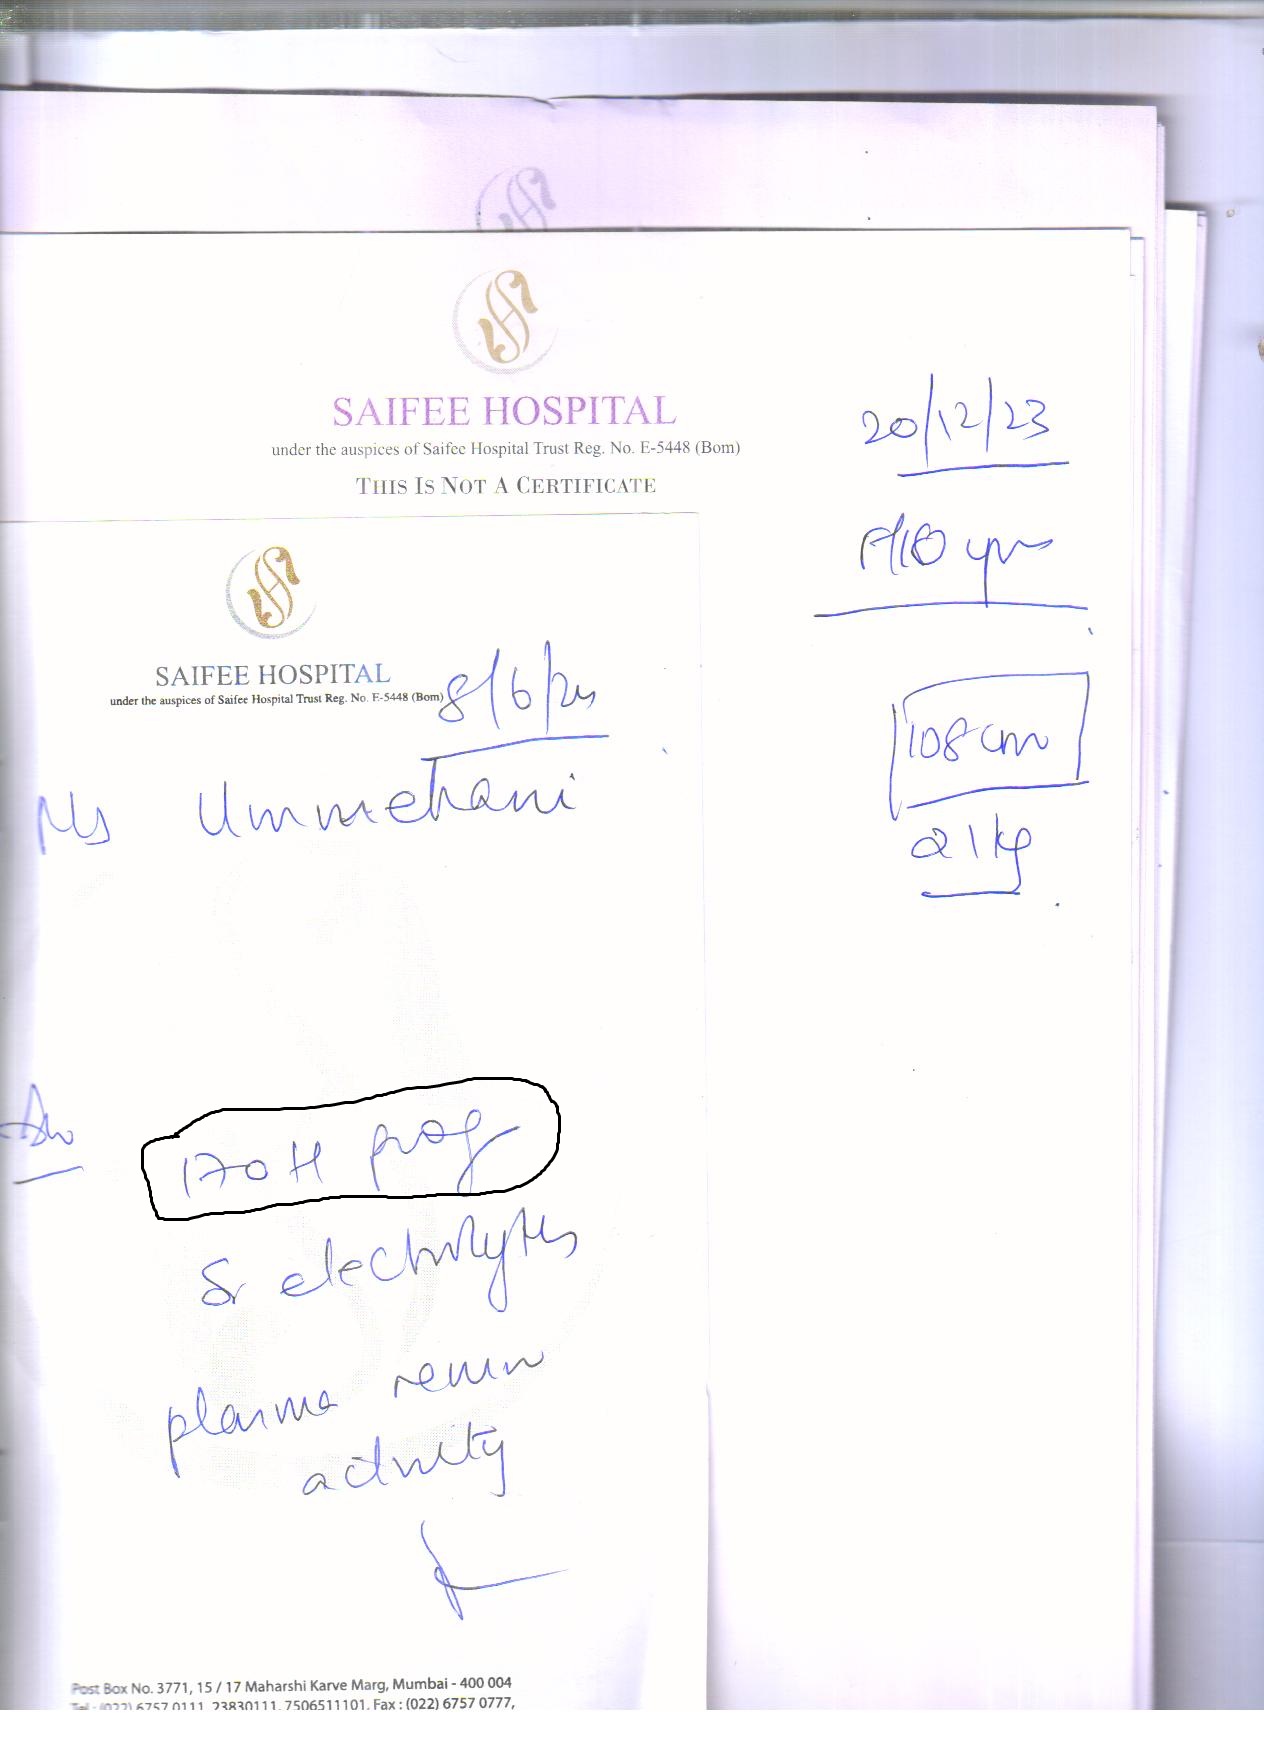 SAIFEE HOSPITAL
under the auspices of Saifee Hospital Trust Reg. No. E-5448 (Bom)
THIS IS NOT A CERTIFICATE
20/12/23
yrs
108 cm
21 kg
SAIFEE HOSPITAL
under the auspices of Saifee Hospital Trust Reg. No. E-5448 (Bom)
8/6/24
Ms Ummehani
Adv
17OH prog
Sr electrolytes
plasma renin
activity
Post Box No. 3771, 15 / 17 Maharshi Karve Marg, Mumbai - 400 004
Tel : (022) 6757 0111, 23830111, 7506511101, Fax : (022) 6757 0777,